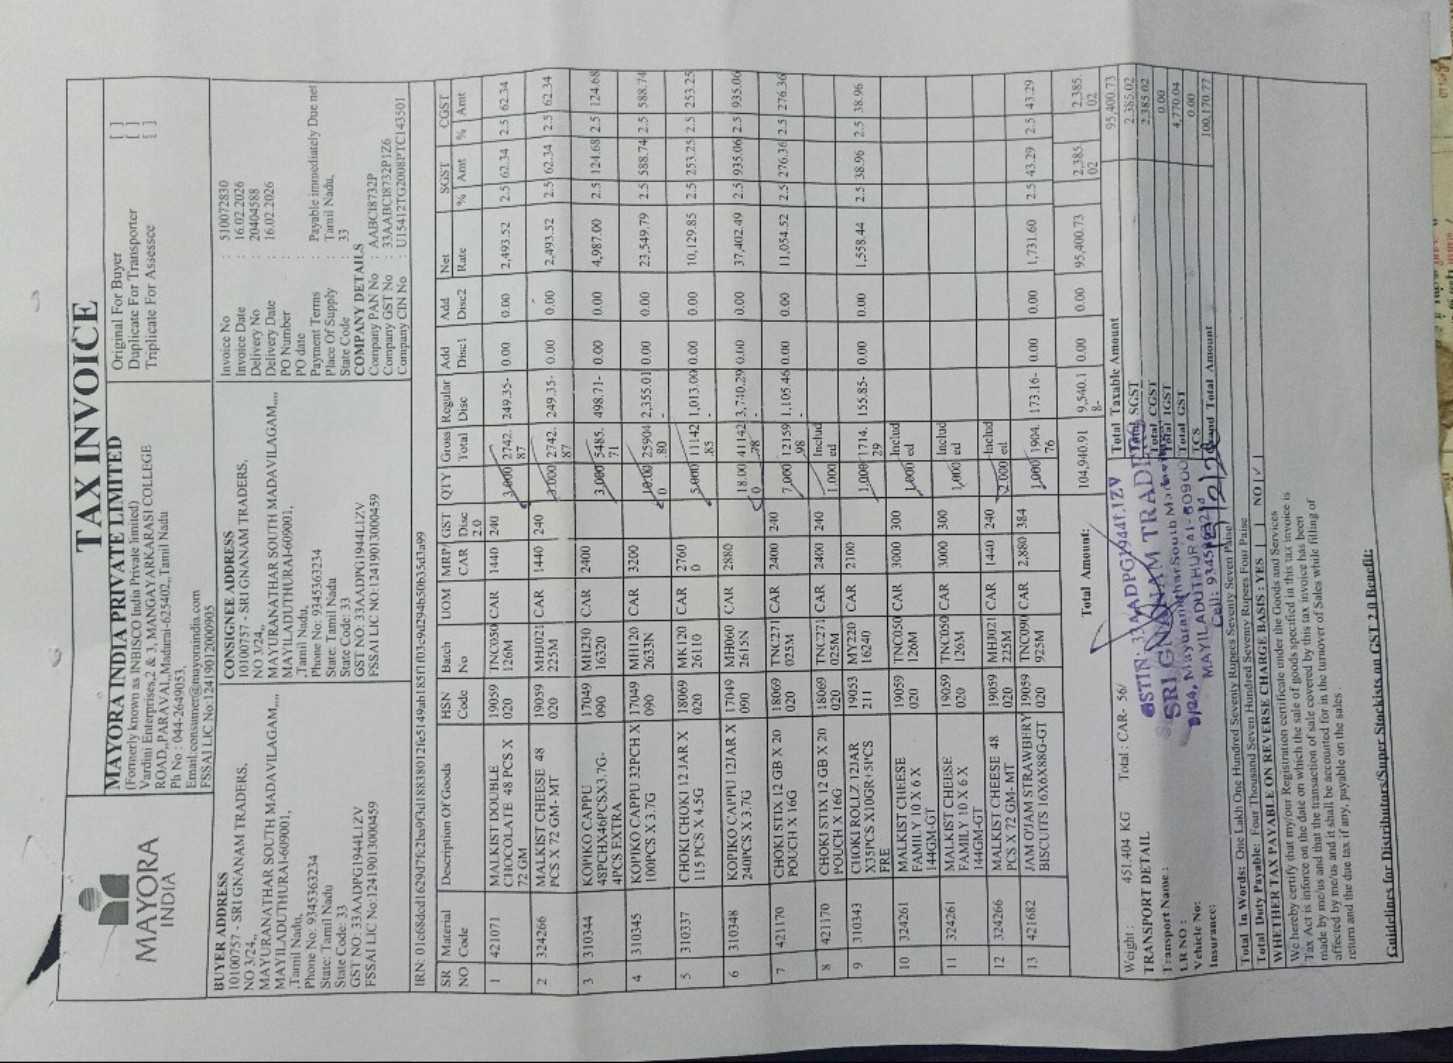 MAYORA
INDIA
TAX INVOICE
MAYORA INDIA PRIVATE LIMITED
(Formerly known as INBISCO India Private limited)
Vardini Enterprises,2 & 3, MANGAYARKARASI COLLEGE
ROAD,,PARAVAI,,Madurai-625402,,Tamil Nadu
Ph No : 044-2649053,
Email:consumer@mayoraindia.com
FSSAI LIC No:12419012000905
Original For Buyer [ ]
Duplicate For Transporter [ ]
Triplicate For Assessee [ ]
BUYER ADDRESS
10100757 - SRI GNANAM TRADERS,
NO 3/24,,
MAYURANATHAR SOUTH MADAVILAGAM,,,,
MAYILADUTHURAI-609001,
,Tamil Nadu,
Phone No: 9345363234
State: Tamil Nadu
State Code: 33
GST NO: 33AADPG1944L1ZV
FSSAI LIC No:12419013000459
CONSIGNEE ADDRESS
10100757 - SRI GNANAM TRADERS,
NO 3/24,,
MAYURANATHAR SOUTH MADAVILAGAM,,,,
MAYILADUTHURAI-609001,
,Tamil Nadu,
Phone No: 9345363234
State: Tamil Nadu
State Code: 33
GST NO: 33AADPG1944L1ZV
FSSAI LIC NO:12419013000459
Invoice No : 510072830
Invoice Date : 16.02.2026
Delivery No : 20404588
Delivery Date : 16.02.2026
PO Number :
PO date :
Payment Terms : Payable immediately Due net
Place Of Supply : Tamil Nadu,
State Code : 33
COMPANY DETAILS
Company PAN No : AABCI8732P
Company GST No : 33AABCI8732P1Z6
Company CIN No : U15412TG2008PTC143501
SR NO Material Code Description Of Goods HSN Code Batch No UOM MRP/ CAR GST Disc 2.0 QTY Gross Total Regular Disc Add Disc1 Add Disc2 Net Rate SGST % Amt CGST % Amt
1 421071 MALKIST DOUBLE CHOCOLATE 48 PCS X 72 GM 19059020 TNC050126M CAR 1440 240 3.000 2742.87 249.35- 0.00 0.00 2,493.52 2.5 62.34 2.5 62.34
2 324266 MALKIST CHEESE 48 PCS X 72 GM- MT 19059020 MHJ021225M CAR 1440 240 3.000 2742.87 249.35- 0.00 0.00 2,493.52 2.5 62.34 2.5 62.34
3 310344 KOPIKO CAPPU 48PCHX46PCSX3.7G-4PCS EXTRA 17049090 MH23016320 CAR 2400 3.000 5485.71 498.71- 0.00 0.00 4,987.00 2.5 124.68 2.5 124.68
4 310345 KOPIKO CAPPU 32PCH X 100PCS X 3.7G 17049090 MH1202633N CAR 3200 10.000 25904.80 2,355.01- 0.00 0.00 23,549.79 2.5 588.74 2.5 588.74
5 310337 CHOKI CHOKI 12 JAR X 115 PCS X 4.5G 18069020 MK12026110 CAR 27600 5.000 11142.85 1,013.00- 0.00 0.00 10,129.85 2.5 253.25 2.5 253.25
6 310348 KOPIKO CAPPU 12JAR X 240PCS X 3.7G 17049090 MH0602615N CAR 2880 18.000 41142.78 3,740.29- 0.00 0.00 37,402.49 2.5 935.06 2.5 935.06
7 421170 CHOKI STIX 12 GB X 20 POUCH X 16G 18069020 TNC271025M CAR 2400 240 7.000 12159.98 1,105.46- 0.00 0.00 11,054.52 2.5 276.36 2.5 276.36
8 421170 CHOKI STIX 12 GB X 20 POUCH X 16G 18069020 TNC271025M CAR 2400 240 1.000 Included
9 310343 CHOKI ROLLZ 12JAR X35PCS X10GR+5PCS FRE 19053211 MY22016240 CAR 2100 1.000 1714.29 155.85- 0.00 0.00 1,558.44 2.5 38.96 2.5 38.96
10 324261 MALKIST CHEESE FAMILY 10 X 6 X 144GM-GT 19059020 TNC050126M CAR 3000 300 1.000 Included
11 324261 MALKIST CHEESE FAMILY 10 X 6 X 144GM-GT 19059020 TNC050126M CAR 3000 300 1.000 Included
12 324266 MALKIST CHEESE 48 PCS X 72 GM- MT 19059020 MHJ021225M CAR 1440 240 2.000 Included
13 421682 JAM O'JAM STRAWBERY BISCUITS 16X6X88G-GT 19059020 TNC090925M CAR 2,880 384 1.000 1904.76 173.16- 0.00 0.00 1,731.60 2.5 43.29 2.5 43.29
Total Amount: 104,940.91 9,540.18- 0.00 0.00 95,400.73 2,385.02 2,385.02
Weight : 451.404 KG Total : CAR- 56/
TRANSPORT DETAIL
Transport Name :
LR NO :
Vehicle No:
Insurance:
GSTIN: 33AADPG1944L1ZV
SRI GNANAM TRADERS
MAYILADUTHURAI-
Total Taxable Amount 95,400.73
Total SGST 2,385.02
Total CGST 2,385.02
Total IGST 0.00
Total GST 4,770.04
TCS 0.00
Grand Total Amount 100,170.77
Total In Words: One Lakh One Hundred Seventy Rupees Seventy Seven Paise
Total Duty Payable: Four Thousand Seven Hundred Seventy Rupees Four Paise
WHETHER TAX PAYABLE ON REVERSE CHARGE BASIS : YES [ ] NO [✓]
We hereby certify that my/our Registration certificate under the Goods and Services
Tax Act is inforce on the date on which the sale of goods specified in this tax invoice is
made by me/us and that the transaction of sale covered by this tax invoice has been
affected by me/us and it shall be accounted for in the turnover of Sales while filling of
return and the due tax if any, payable on the sales
Guidelines for Distributors/Super Stockists on GST 2.0 Benefit: